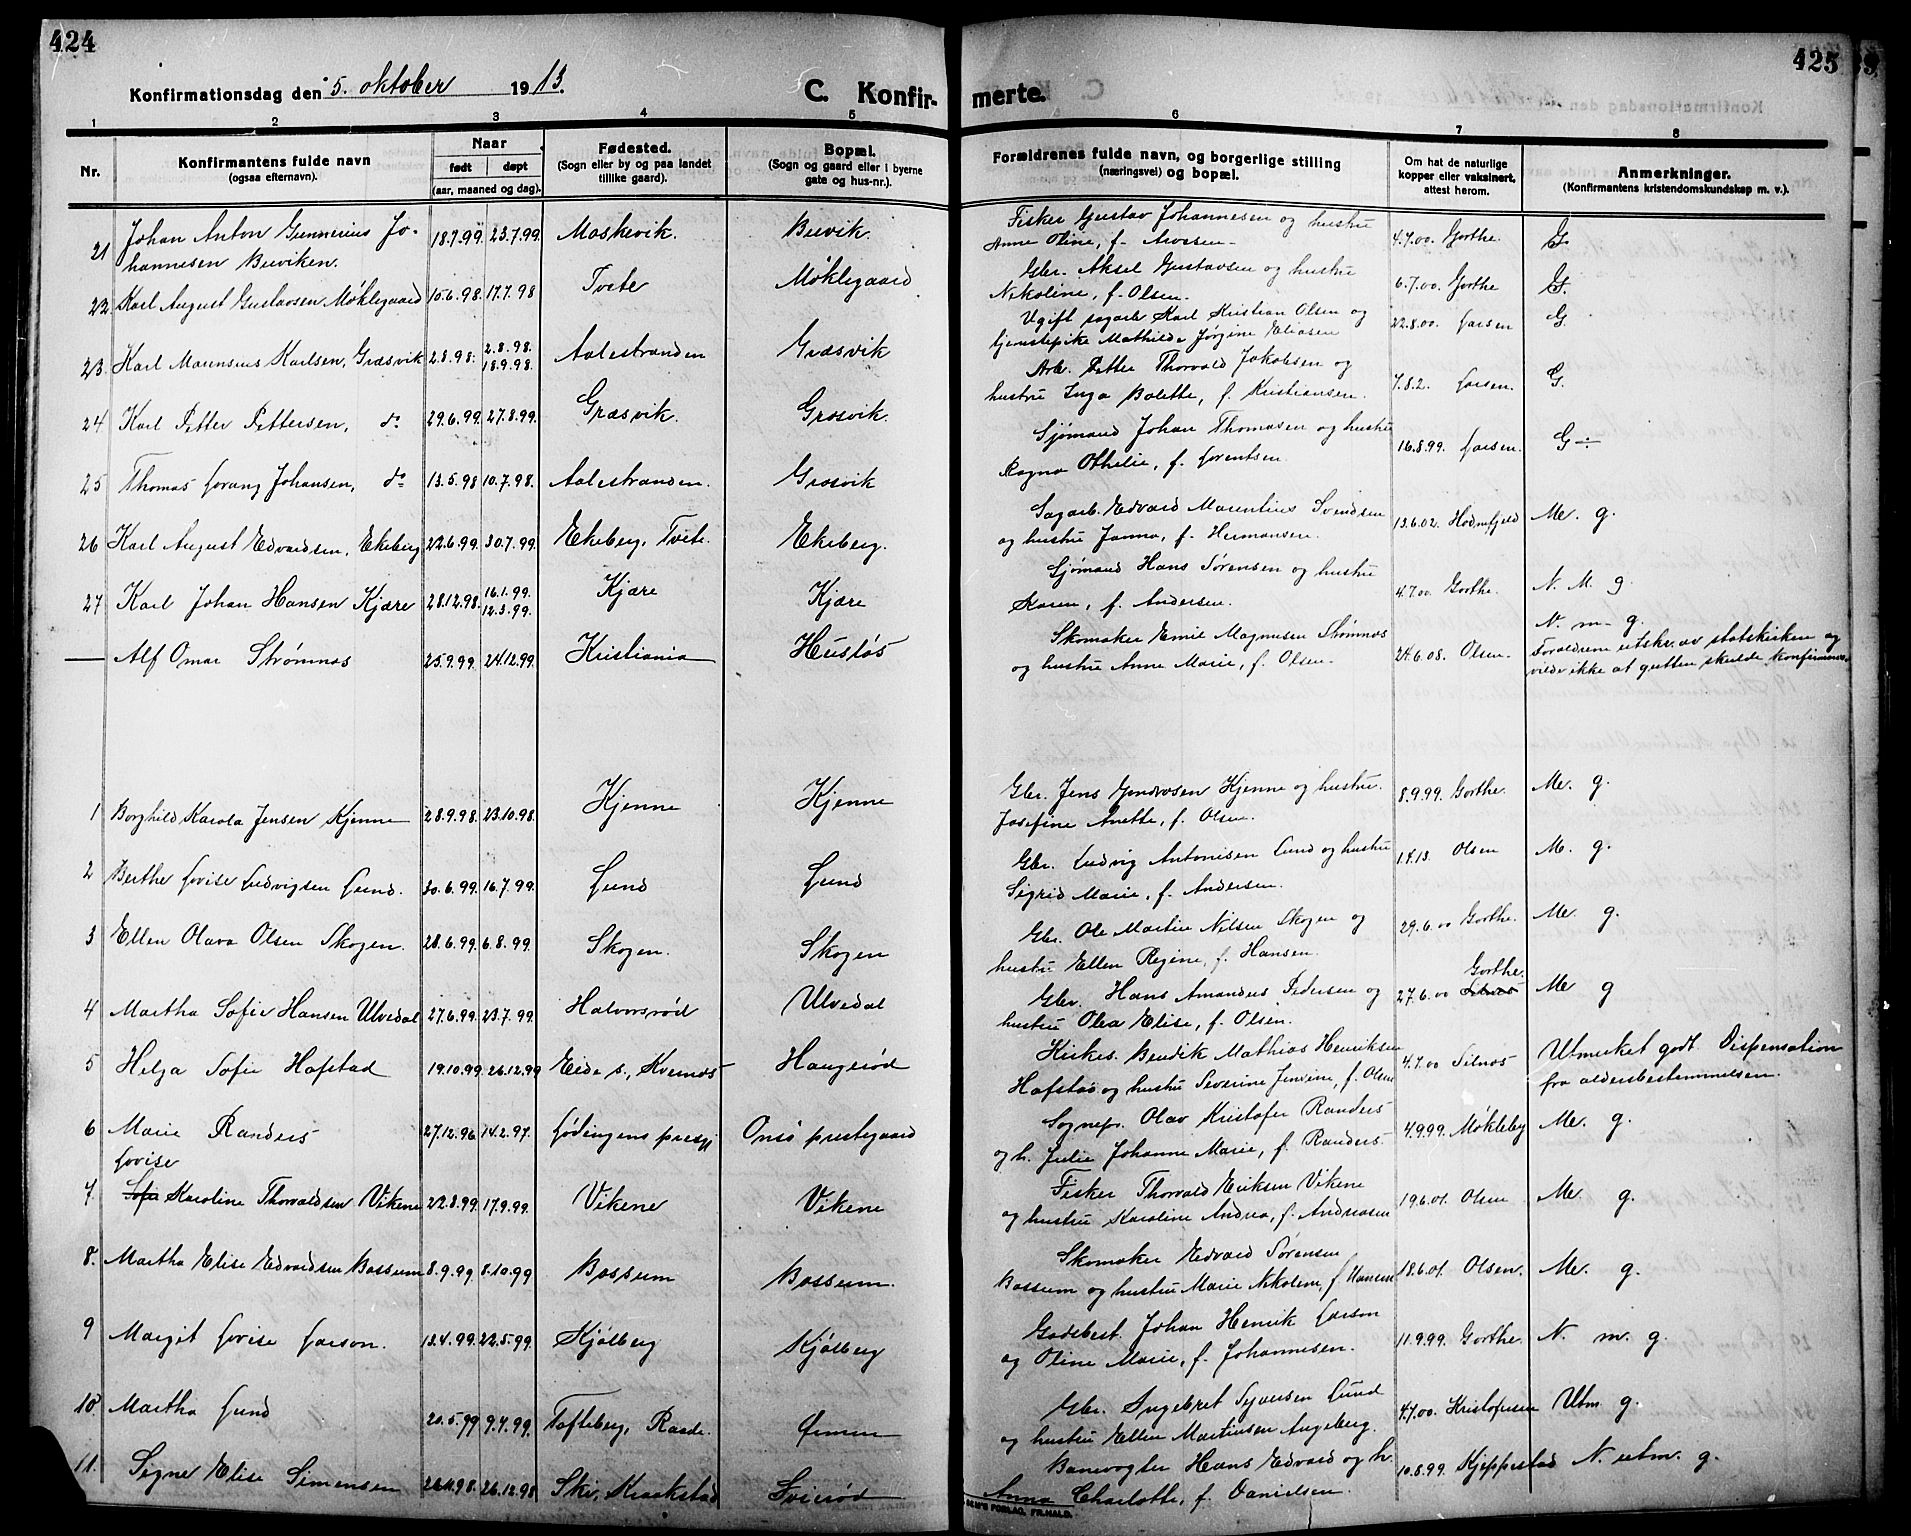 424
425
Konfirmationsdag den 5. oktober 1913.
C. Konfirmerte.
1 2 3 4 5 6 7 8
Nr.
Konfirmantens fulde navn
(ogsaa efternavn).
Naar
født døpt
(aar, maaned og dag).
Fødested.
(Sogn eller by og paa landet
tillike gaard).
Bopæl.
(Sogn og gaard eller i byerne
gate og hus-nr.).
Forældrenes fulde navn, og borgerlige stilling
(næringsvei) og bopæl.
Om hat de naturlige
kopper eller vaksinert,
attest herom.
Anmerkninger.
(Konfirmantens kristendomskundskap m. v.).
21 Johan Anton Gunnerius Jo-
hannesen Buviken. 18.7.99. 23.7.99. Moskevik. Buvik.
Fisker Gustav Johannesen og hustru
Anne Oline, f. 4.7.00. Gorthe. G.
22 Karl August Gustavsen Møklegaard 10.6.98. 17.7.98 Tvete Møklegaard
Gbr. Aksel Gustavsen og hustru
Nikoline, f. Olsen. 6.7.00. Gorthe G.
23 Karl Marensius Karlsen, Græsvik 2.8.98. 2.8.98. 18.9.98. Aalestranden Græsvik
Ugift sagarb. Karl Kristian Olsen og
tjenestepike Mathilde Jørgine Eliasen 22.8.00. Larsen G.
24 Karl Petter Pettersen, do 29.6.99. 27.8.99. Græsvik. Græsvik.
Arb. Petter Thorvald Jakobsen og
hustru Inga Bolette, f. Kristiansen. 7.8.2. Larsen. G.
25 Thomas Lorang Johansen, do 13.5.98 10.7.98. Aalestranden. Græsvik
Sjømand Johan Thomasen og hustru
Ragna Othilie, f. Lorentsen. 16.8.99. Larsen. G-
26 Karl August Edvardsen, Ekeberg 22.6.99. 30.7.99. Ekeberg, Tvete. Ekeberg.
Sagarb. Edvard Marentius Svendsen
og hustru Janna, f. Hermansen. 13.6.02. Hodnefjeld Me. g.
27 Karl Johan Hansen Kjære 28.12.98. 16.1.99. 12.3.99. Kjære Kjære
Sjømand Hans Sørensen og hustru
Karen, f. Andersen. 4.7.00 Gorthe. N. M. g
— Alf Omar Strømnæs 25.9.99. 24.12.99. Kristiania Husløs
Skomaker Emil Magnusen Strømnæs
og hustru Anne Marie, f. Olsen. 24.6.08. Olsen. N. m- g.
Forældrene utskr. av statskirken og
vilde ikke at gutten skulde konfirmeres.
1 Borghild Karola Jensen Kjenne 28.9.98. 23.10.98. Kjenne Kjenne
Gbr. Jens Kjenne og hustru
Josefine Anette, f. Olsen. 8.9.99. Gorthe. Me. g.
2 Berthe Lovise Ludvigsen Lund. 30.6.99. 16.7.99. Lund Lund
Gbr. Ludvig Antonisen Lund og hustru
Sigrid Marie, f. Andersen. Olsen M. g.
3 Ellen Olava Olsen Skogen. 28.6.99. 6.8.99. Skogen. Skogen
Gbr. Ole Martin Nilsen Skogen og
hustru Ellen Regine, f. Hansen. 29.6.00 Gorthe. Me. g.
4 Martha Sofie Hansen Ulvedal 27.6.99. 23.7.99. Halvorsrød Ulvedal
Gbr. Hans Amandus Pedersen og
hustru Olea Elise, f. Olsen. 27.6.00 Gorthe. Me g
5 Helga Sofie Hafstad 19.10.99. 26.12.99 Eide s., Kvernæs Haugerød
Kirkes. Bendik Mathias Henriksen
Hafstad og hustru Severine Jensine, f. Olsen 4.7.00 Selnæs Utmerket godt. Dispensation
fra aldersbestemmelsen.
6 Marie Randers 27.12.96. 14.2.97. Lødingens prestgj Onsø prestegaard
Sognepr. Olav Kristofer Randers
og h. Julie Johanne Marie, f. Randers. 4.9.99. Møkleby Me. g.
7. Lovise Sofie Karoline Thorvaldsen Vikene 22.8.99. 17.9.99. Vikene Vikene
Fisker Thorvald Eriksen Vikene
og hustru Karoline Andrea, f. Andreasen 19.6.01. Olsen Me. g.
8. Martha Elise Edvardsen Bossum 8.9.99. 8.10.99 Bossum Bossum.
Skomaker Edvard Sørensen
Bossum og hustru Marie Nikoline, f. Hansen 18.6.01. Olsen. Me. g.
9 Margit Lovise Larson. 13.4.99. 22.5.99. Kjølberg Kjølberg
Godsbest. Johan Henrik Larson
og Oline Marie, f. Johannesen. 11.9.99. Gorthe. N. m. g.
10. Martha Lund 20.5.99 9.7.99. Tofteberg, Raade.
Gbr. Ingebret Lund
og hustru Ellen Martinsen Augeberg. 4.7.00. Kristofersen Utm g.
11. Signe Elise Simensen 26.12.98. Ski, Kraakstad
Banevogter Hans Edvard og h.
Anna Charlotte, f. Danielsen. 10.8.99. Kjeppestad N. utm. g.
FORLAG, FR.HALD.